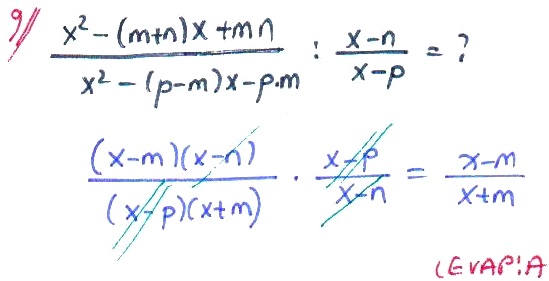 9) (x² - (m+n)x + mn) / (x² - (p-m)x - p.m) : (x-n) / (x-p) = ?
((x-m)(x-n)) / ((x-p)(x+m)) · (x-p) / (x-n) = (x-m) / (x+m)
CEVAP:A